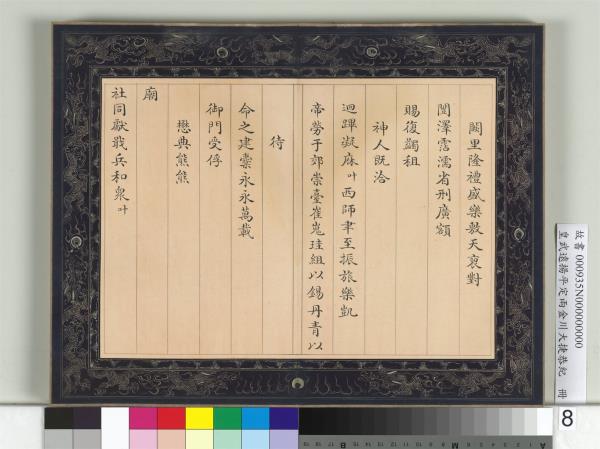 闕里隆禮盛樂敷天裒對
闓澤霑濡省刑廣額
賜復蠲租
神人既洽
迴蹕凝庥叶西師聿至振旅樂凱
帝勞于郊崇臺崔嵬珪組以錫丹青以
待
命之建橐永永萬載
御門受俘
懋典熊熊
廟
社同獻戢兵和衆叶
故書 000935N000000000
皇武遠揚平定兩金川大捷恭紀 冊
8